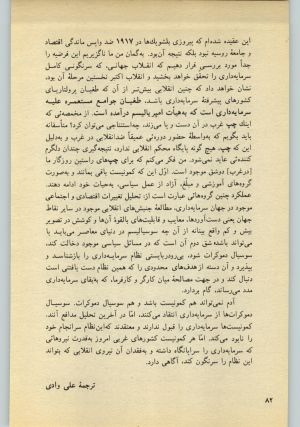 این عقیده شده‌ام که پیروزی بلشویک‌ها در ۱۹۱۷ ضد واپس ماندگی اقتصاد
و جامعهٔ روسیه نبود بلکه نتیجهٔ آن‌بود. به‌گمان من ما ناگزیریم این فرضیه را
جداً مورد بررسی قرار دهیم که انقلاب جهانی، که سرنگونی کامل
سرمایه‌داری را تحقق خواهد بخشید و انقلاب اکتبر نخستین مرحلهٔ آن بود،
نشان خواهد داد که چنین انقلابی بیش‌تر از آن که طغیان پرولتاریای
کشورهای پیشرفتهٔ سرمایه‌داری باشد، طغیان جوامع مستعمره علیه
سرمایه‌داری است که به‌هیأت امپریالیسم درآمده است. از مخمصه‌ئی که
اینک چپ غرب در آن دست و پا می‌زند، چه‌استنتاجی می‌توان کرد؟ متأسفانه
باید بگویم که به‌واسطهٔ حضور دورنی عمیقاً ضدانقلابی در غرب و به‌دلیل
این که چپ، هیچ گونه پایگاه محکم انقلابی ندارد، نتیجه‌گیری چندان دلگرم
کننده‌ئی عاید نمی‌شود. من فکر می‌کنم که برای چپ‌های راستین روزگار ما
[درغرب] دوشق موجود است. اول این که کمونیست باقی بمانند و به‌صورت
گروه‌های آموزشی و مبلّغ، آزاد از عمل سیاسی، به‌حیات خود ادامه دهند.
عملکرد چنین گروه‌هائی عبارت است از: تحلیل تغییرات اقتصادی و اجتماعی
موجود در جهان سرمایه‌داری، مطالعهٔ جنبش‌های انقلابی موجود در سایر نقاط
جهان یعنی دست‌آوردها، معایب و قابلیت‌های بالقوهٔ آن‌ها و کوشش در تصویر
بیش و کم واقع بینانه از آن چه سوسیالیسم در دنیای معاصر می‌باید یا
می‌تواند باشد؛ شق دوم آن است که در مسائل سیاسی موجود دخالت کند،
سوسیال دموکرات شود، بی‌رودربایستی نظام سرمایه‌داری را بازشناسد و
بپذیرد و آن دسته ازهدف‌های محدودی را که همین نظام دست یافتنی است
دنبال کند و در جهت مصالحهٔ میان کارگر و کارفرما، که به‌بقای سرمایه‌داری
مدد می‌رساند، گام بردارد.
آدم نمی‌تواند هم کمونیست باشد و هم سوسیال دموکرات. سوسیال
دموکرات‌ها از سرمایه‌داری انتقاد می‌کنند، امّا در آخرین تحلیل مدافع آنند.
کمونیست‌ها سرمایه‌داری را قبول ندارند و معتقدند که‌این‌نظام سرانجام خود
را نابود می‌کند. امّا هر کمونیست کشورهای غربی امروز به‌قدرت نیروهائی
که سرمایه‌داری را سراپانگاه داشته و به‌فقدان آن نیروی انقلابی که بتواند
این نظام را سرنگون کند، آگاهی دارد.
ترجمهٔ علی وادی
۸۲